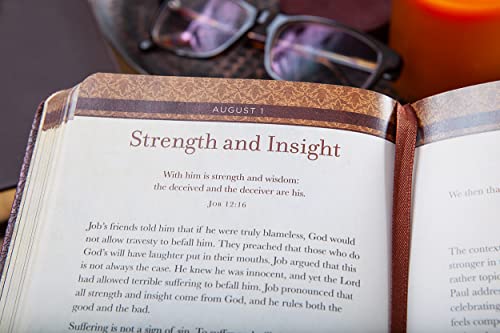 AUGUST 1
Strength and Insight
With him is strength and wisdom:
the deceived and the deceiver are his.
Job 12:16
Job's friends told him that if he were truly blameless, God would
not allow travesty to befall him. They preached that those who do
God's will have laughter put in their mouths. Job argued that this
is not always the case. He knew he was innocent, and yet the Lord
had allowed terrible suffering to befall him. Job pronounced that
all strength and insight come from God, and he rules both the
good and the bad.
Suffering is not a sign of sin. To suffer
We then tha
The context
stronger in
rather topi
Paul addre
celebrating